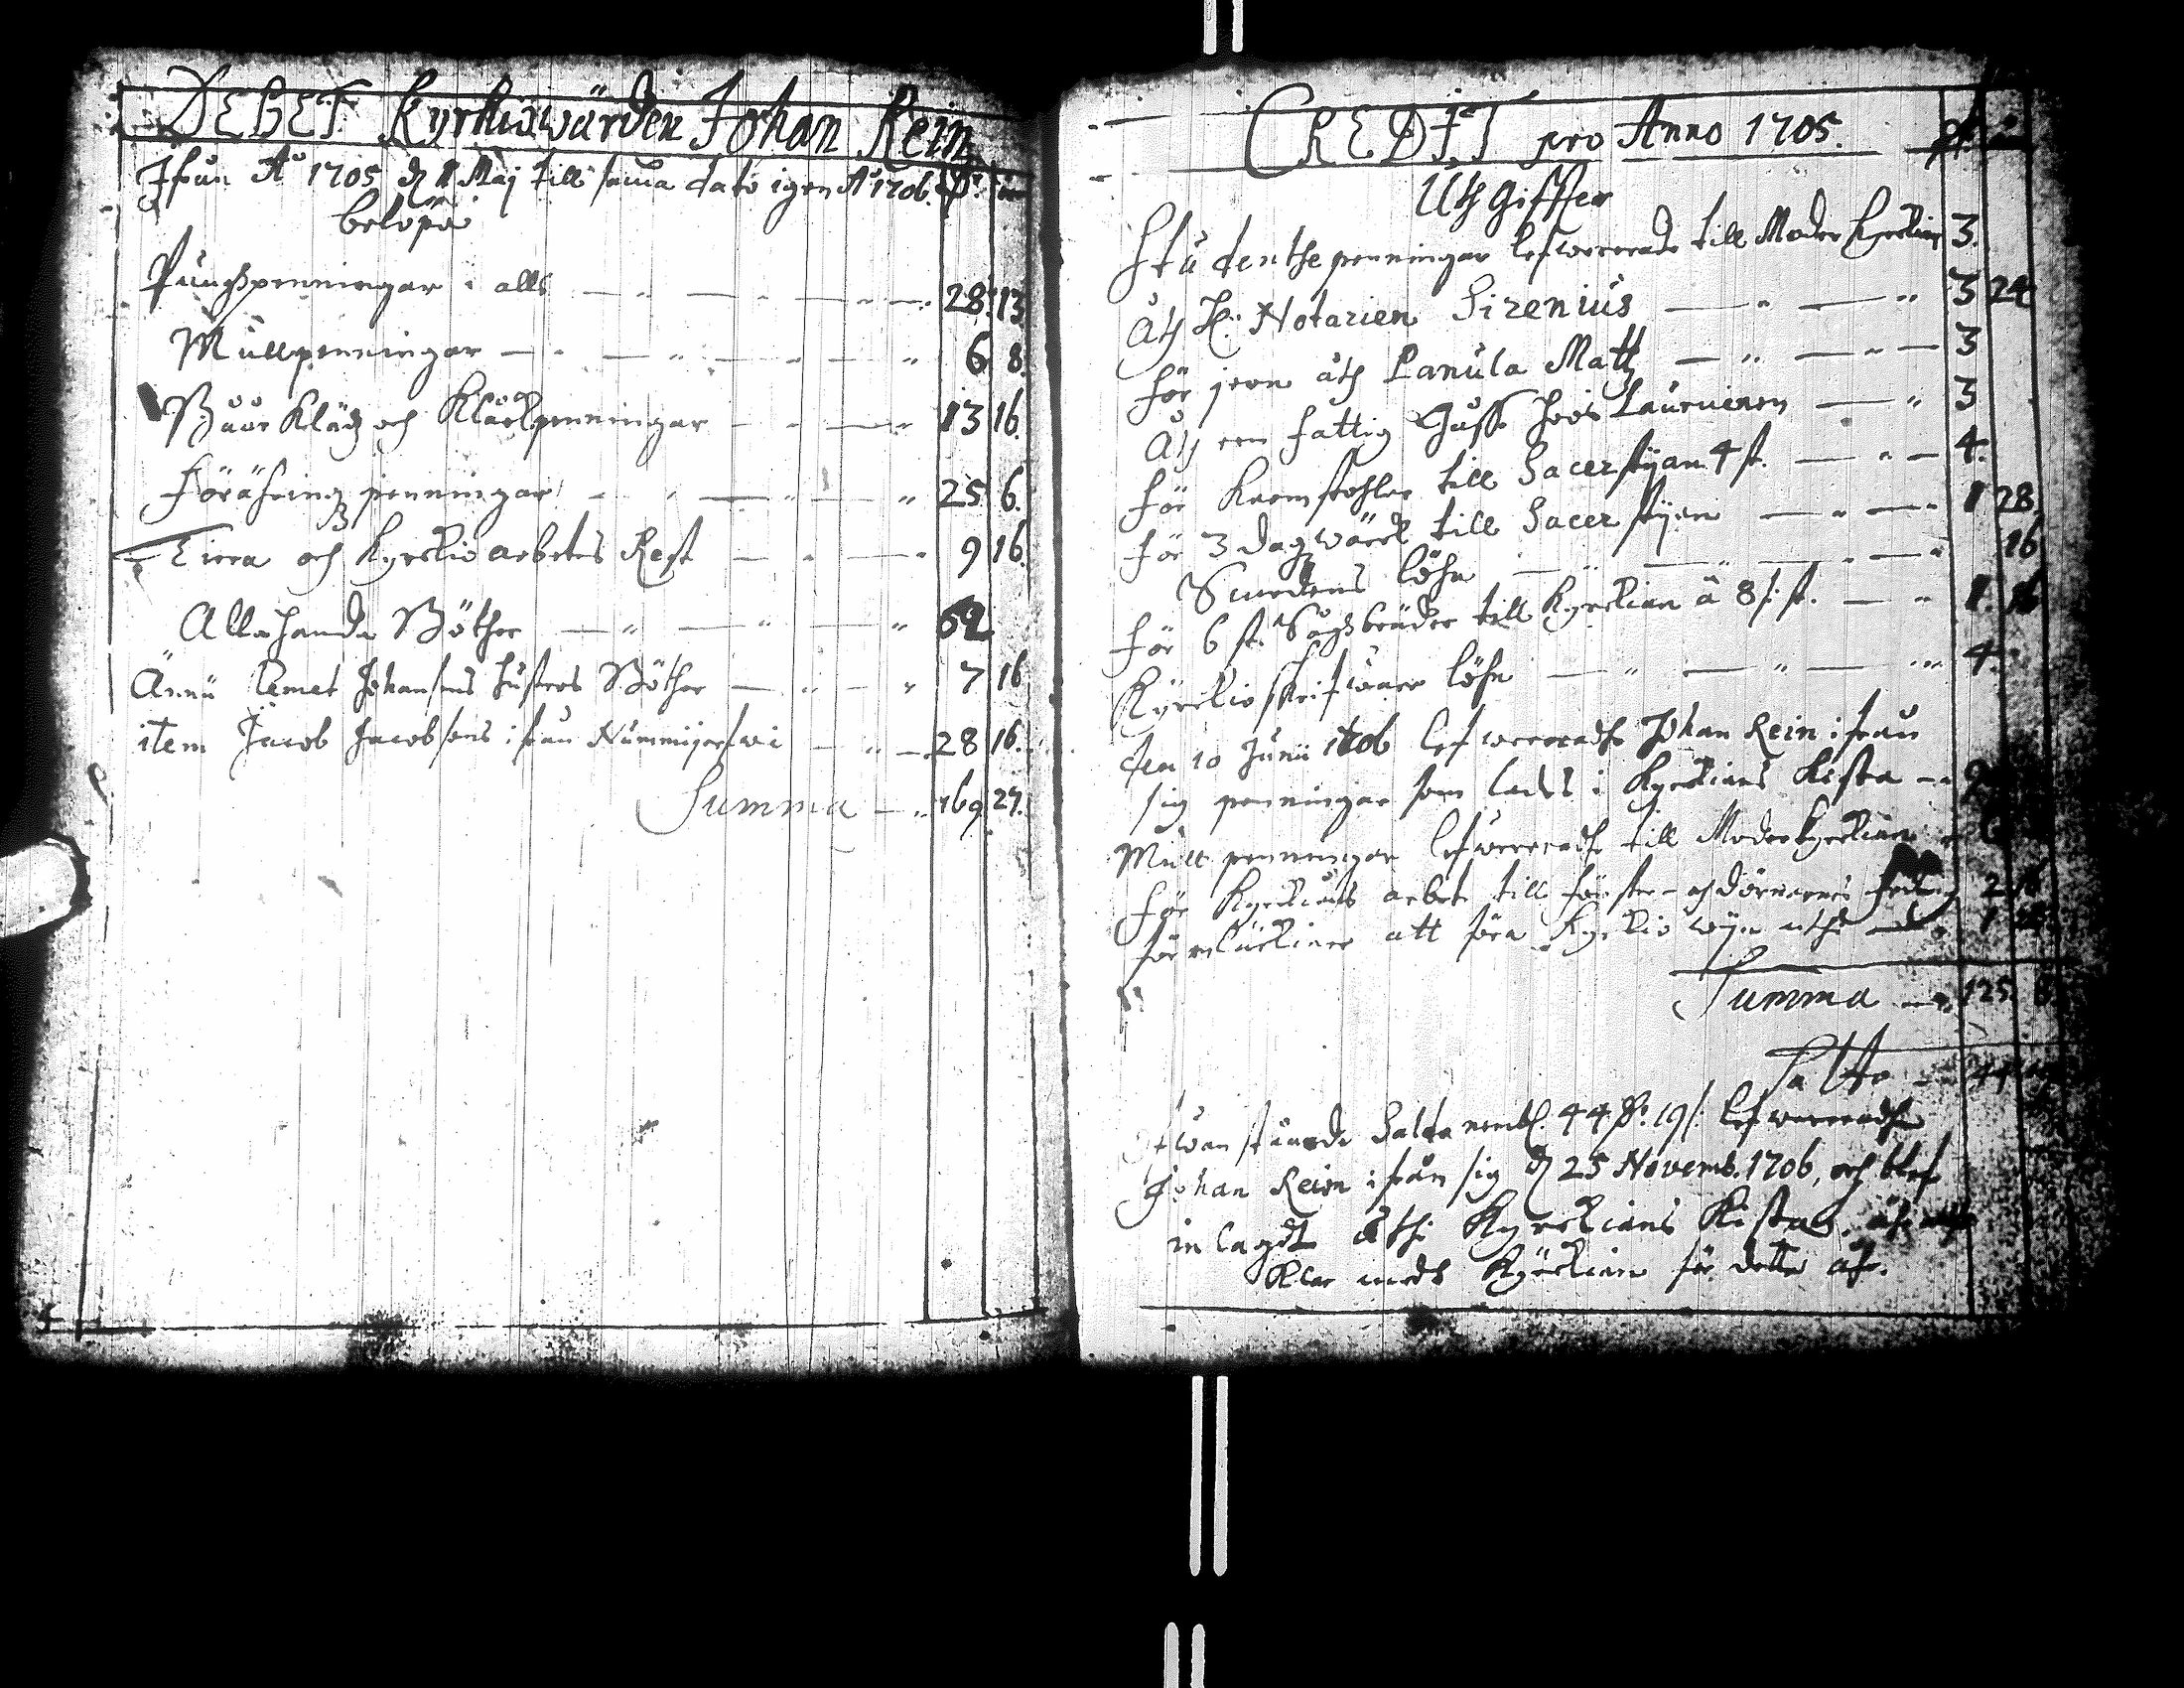 DEBET Kyrkiowärden Johan Rein
Ifrån Ao 1705 d 1 Maj till sama dato igen Ao 1706. Dr. öre
belopa
Pungpenningar i alls 28. 13
Mullpenningar 6 8.
Båår Kläd och Klåckpenningar 13 16.
Föräringz penningar 25 6.
Tiera och Kyrkio arbetes Rest 9 16.
Allahanda Böther
Ännu Clemet Johansons hustros Böther 7 16
item Jacob Jacobsons ifrån Nummijerfwi 28 16.
Summa 169. 27.
CREDIT pro Anno 1705.
Uth Giffter
Studenthe penningar lefwererade till Moder Kyrkian 3.
Åth H: Notarien Sirenius 3 24
För jern åth Panula Matz 3
Åth een fattig Gusse hoos 3
För stohlar till Sacerstijan 4 st. 4.
För 3 dagzwärck till Sacerstijan 1 28.
Smedens löhn 16
För 6 st. Sågbräder till Kyrkian â 8 st. 1. 16
Kyrkioskrifwarens löhn 4.
den 10 Junii 1706 lefwereradhe Johan Rein ifrån
sig penningar som lades i Kyrkians Kista
Mull penningar lefwereradhe till Moderkyrkian
För Kyrkians arbete till fönster och dörrarnes 2 16
för att föra Kyrkio wijn 1
Summa 125. 8.
Saldo 44
stående Saldo neml. 44 Dr: 19 lefwereradhe
Johan Rein ifrån sig d 25 Novemb. 1706, och blef
in lagdt uthi Kyrkians Kista,
klar medh Kyrkian för detta åhr.